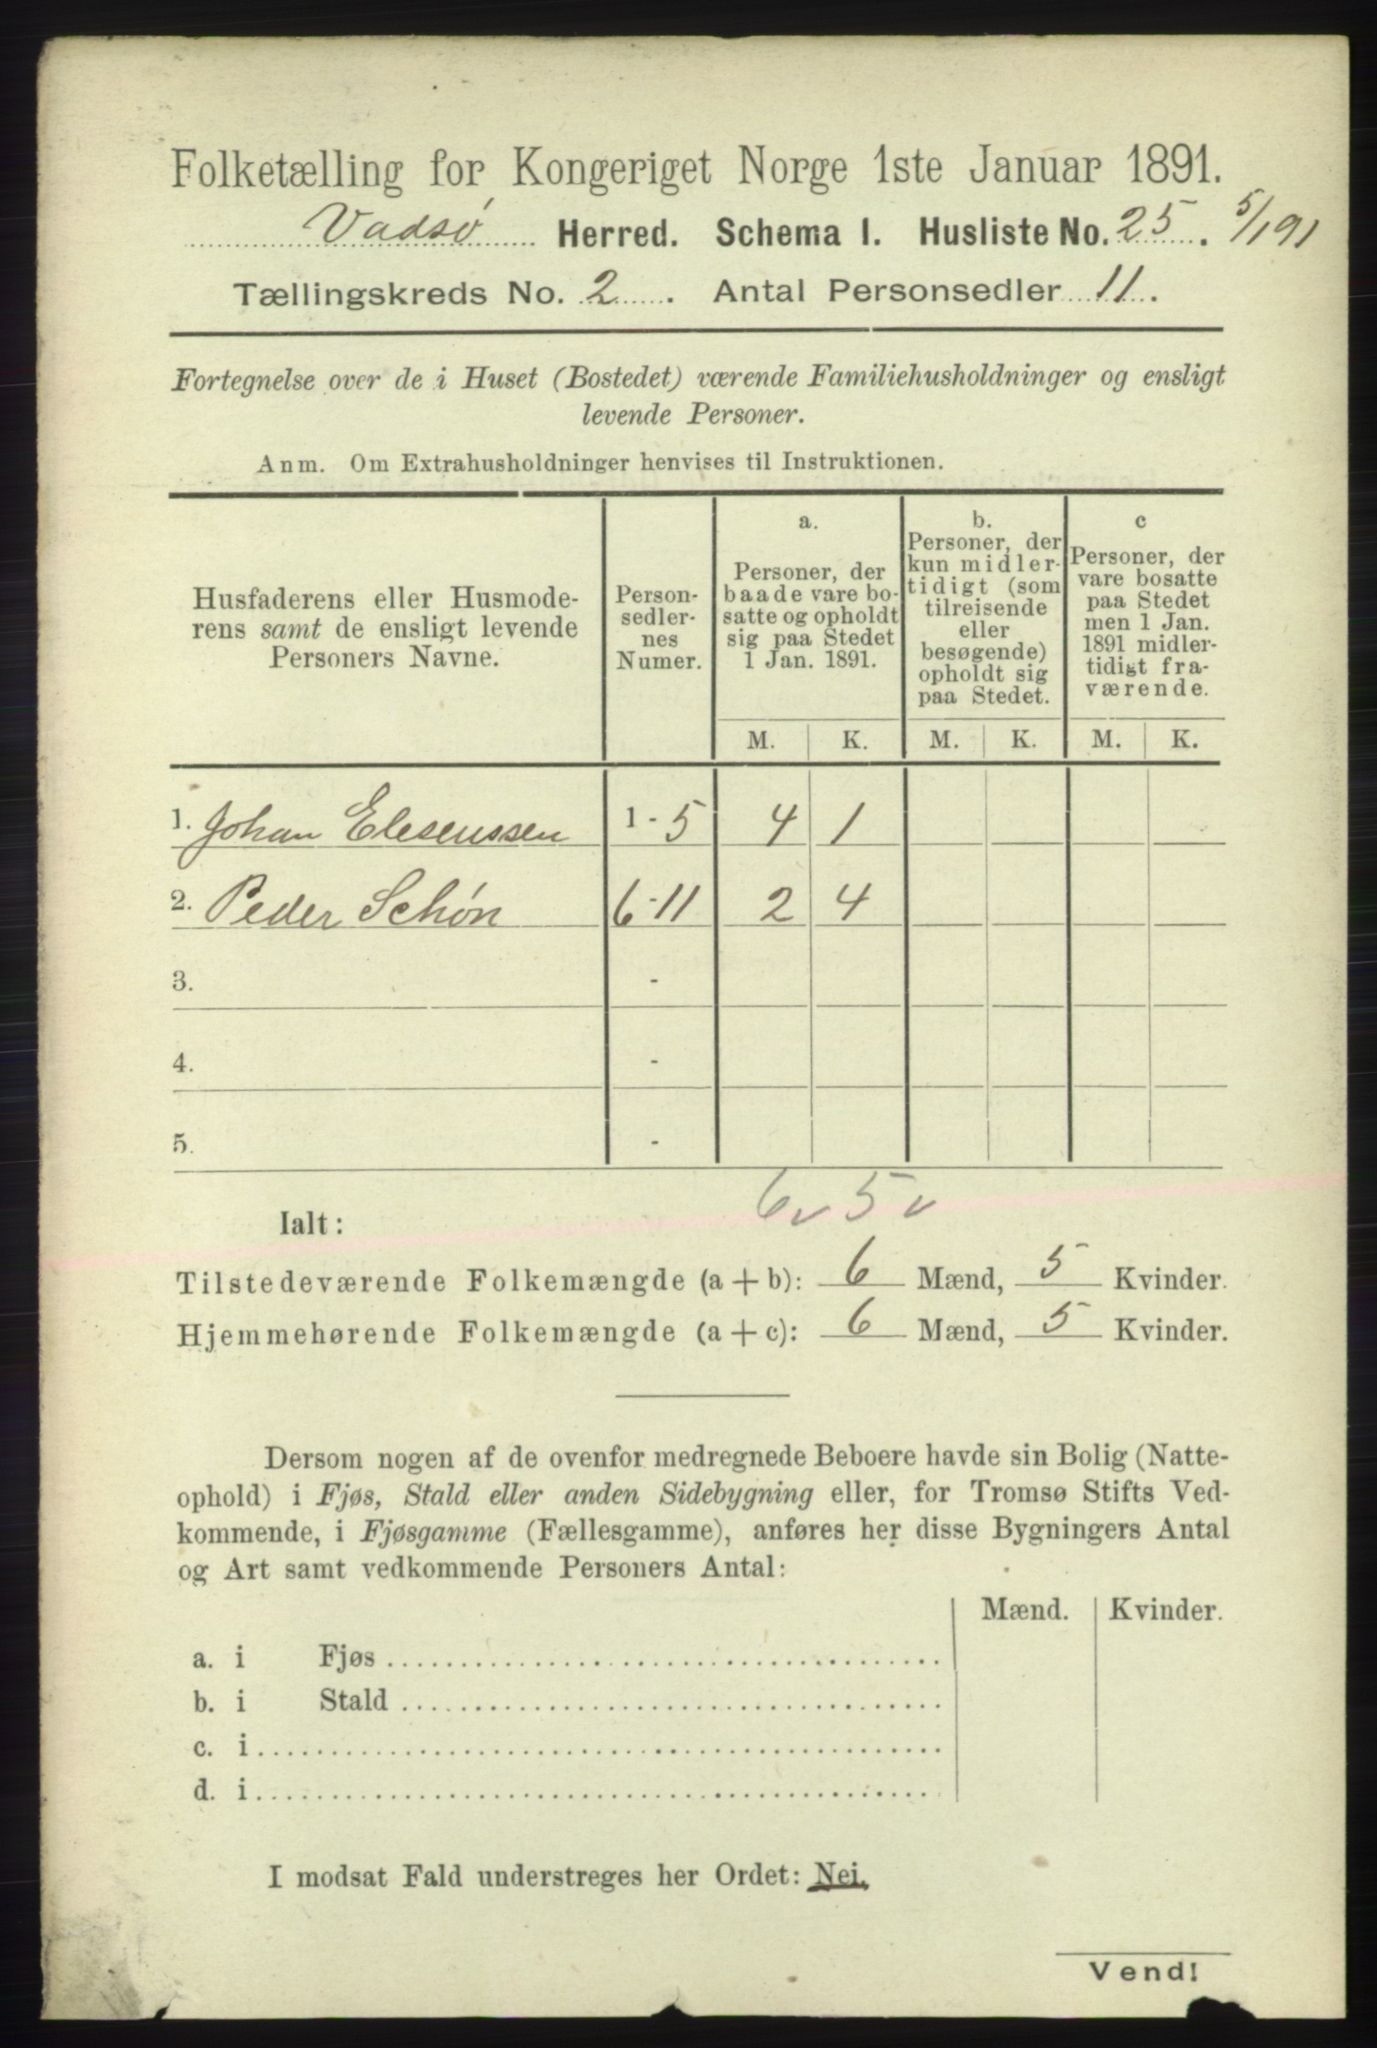 Folketælling for Kongeriget Norge 1ste Januar 1891.
Vadsø Herred. Schema I. Husliste No. 25. 5/1 91
Tællingskreds No. 2. Antal Personsedler 11.
Fortegnelse over de i Huset (Bostedet) værende Familiehusholdninger og ensligt
levende Personer.
Anm. Om Extrahusholdninger henvises til Instruktionen.
Husfaderens eller Husmode-
rens samt de ensligt levende
Personers Navne.
Person-
sedler-
nes
Numer.
a.
Personer, der
baade vare bo-
satte og opholdt
sig paa Stedet
1 Jan. 1891.
b.
Personer, der
kun midler-
tidigt (som
tilreisende
eller
besøgende)
opholdt sig
paa Stedet.
c
Personer, der
vare bosatte
paa Stedet
men 1 Jan.
1891 midler-
tidigt fra-
værende.
M. K. M. K. M. K.
1. Johan Elesenssen 1-5 4 1
2. Peder Schøn 6-11 2 4
3. -
4. -
5. -
6 v 5 v
Ialt:
Tilstedeværende Folkemængde (a + b): 6 Mænd, 5 Kvinder.
Hjemmehørende Folkemængde (a + c): 6 Mænd, 5 Kvinder.
Dersom nogen af de ovenfor medregnede Beboere havde sin Bolig (Natte-
ophold) i Fjøs, Stald eller anden Sidebygning eller, for Tromsø Stifts Ved-
kommende, i Fjøsgamme (Fællesgamme), anføres her disse Bygningers Antal
og Art samt vedkommende Personers Antal:
Mænd. Kvinder.
a. i Fjøs
b. i Stald
c. i
d. i
I modsat Fald understreges her Ordet: Nei.
Vend!